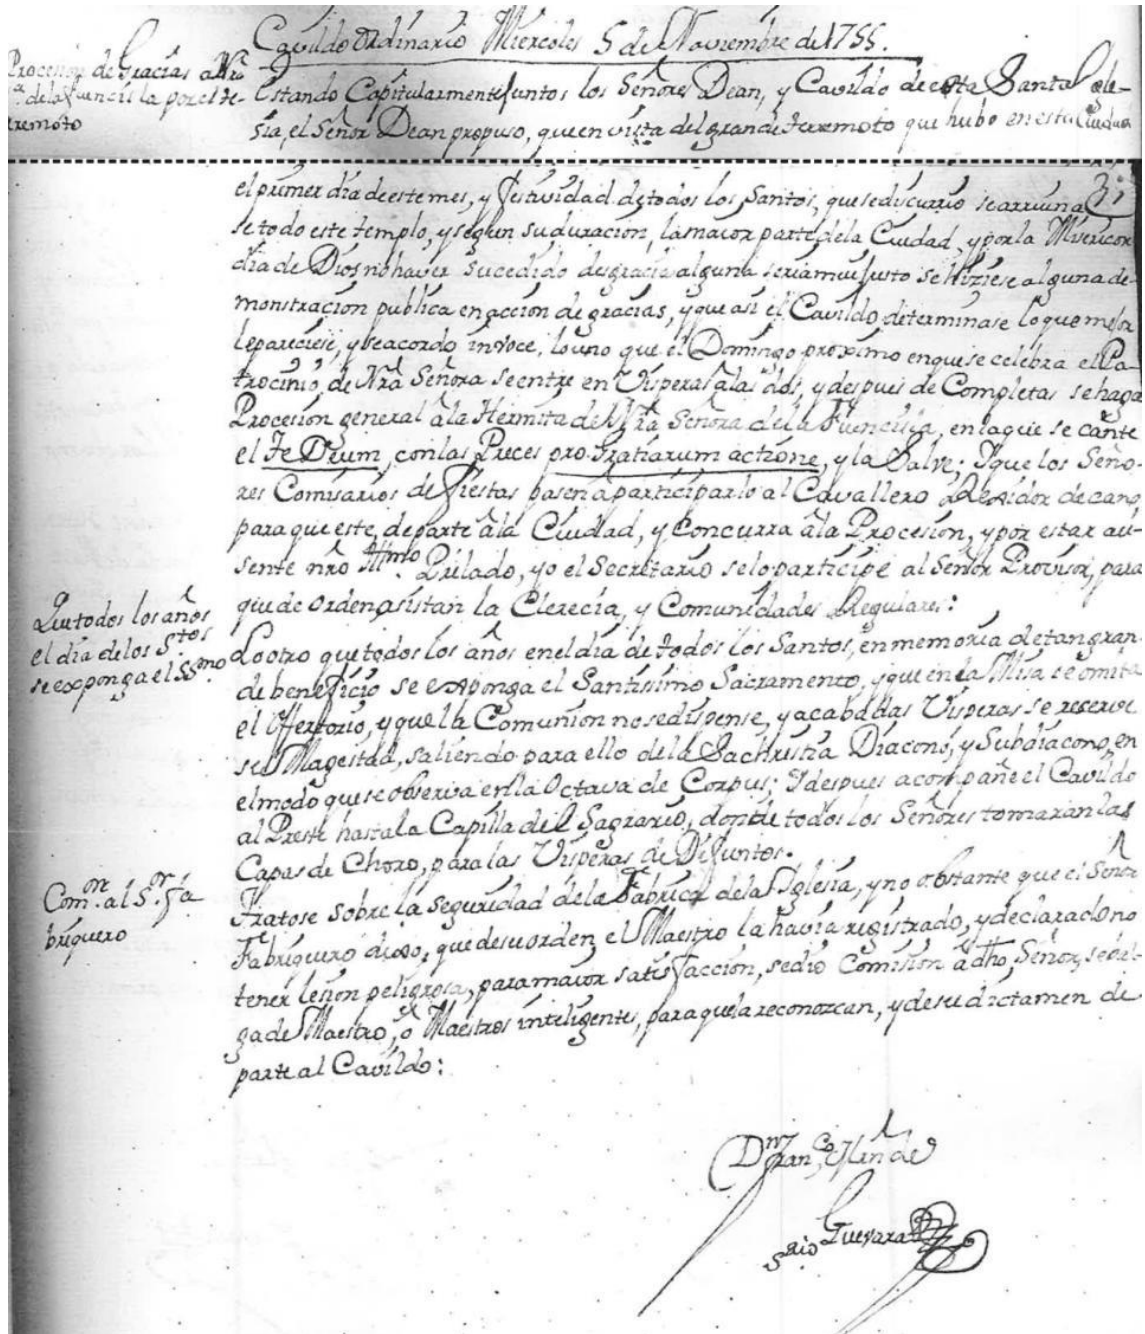 Cavildo Ordinario Miercoles 5 de Noviembre de 1755.
Procesion de Gracias a Nrã
Srã. de la fuencisla por el te-
rremoto
Estando Capitularmente Juntos los Señores Dean, y Cavildo de esta Santa Igle-
sia, el Señor Dean propuso, que en vista del grande terremoto que hubo en esta Ciudad
el primer dia de este mes, y festividad de todos los Santos, que se discurrio se arruina
se todo este templo, y segun su duracion, la maior parte de la Ciudad, y por la Misericor
dia de Dios no haver sucedido desgracia alguna seria mui justo se hiziese alguna de-
monstracion publica en accion de gracias, y que asi el Cavildo determinase lo que mejor
le pareciese, y se acordo in voce, lo uno que el Domingo proximo en que se celebra el Pa-
trocinio de Nrã Señora se entre en Visperas â las dos, y despues de Completas se haga
Procesion general â la Hermita de Nrã Señora de la Fuencisla, en la que se cante
el Te Deum, con las Preces pro gratiarum actione, y la Salve; Y que los Seño-
res Comisarios de fiestas pasen a participarlo al Cavallero Rexidor decano,
para que este, de parte â la Ciudad, y concurra â la Procesion, y por estar au-
sente nro Illmo. Prelado, yo el Secretario se lo participè al Señor Provisor, para
que de orden, asistan la Clerecia, y Comunidades Regulares:
Que todos los años
el dia de los Stos
se exponga el SSmo.
Lo otro que todos los años en el dia de todos los Santos, en memoria de tan gran-
de beneficio se exponga el Santisimo Sacramento, y que en la Misa se omita
el Ofertorio, y que la Comunion no se dispense, y acabadas Visperas se reserve
su Magestad, saliendo para ello de la Sachristia Diacono, y Subdiacono, en
el modo que se observa en la Octava de Corpus; Y despues acompañe el Cavildo
al Preste hasta la Capilla del Sagrario, donde todos los Señores tomaran las
Capas de Choro, para las Visperas de Difuntos.
Comon. al Sor. fa
briquero
Tratose sobre la seguridad de la Fabrica de la Yglesia, y no obstante que el Señor
Fabriquero dixo, que de su orden, el Maestro la havia registrado, y declarado no
tener lesion peligrosa, para maior satisfaccion, se dio Comision a dho Señor, se val-
ga de Maestro, o Maestros inteligentes, para que la reconozcan, y de su dictamen de
parte al Cavildo:
Dn Franco.
Srio Guevara